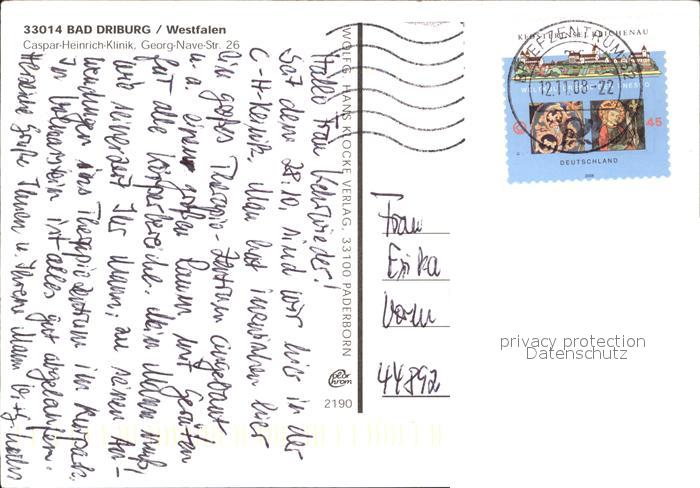 33014 BAD DRIBURG / Westfalen
Caspar-Heinrich-Klinik, Georg-Nave-Str. 26
Hallo Frau
Seit dem 28.10. sind wir hier in der
C-H-Klinik. Man hat inzwischen hier
ein großes Therapie-Zentrum eingebaut
u. a. einen großen Raum mit Geräten
für alle Körperbereiche. Mein Mann muß,
wie seinerzeit Ihr Mann, zu seinen An-
wendungen ins Therapiezentrum im Kurpark.
In ist alles gut abgelaufen.
Herzliche Grüße Ihnen u. Ihrem Mann
WOLFG. HANS KLOCKE VERLAG, 33100 PADERBORN
2190
KLOSTERINSEL REICHENAU
BRIEFZENTRUM
12.11.08-22
45
DEUTSCHLAND
2008
Frau
Erika
44892
privacy protection
Datenschutz